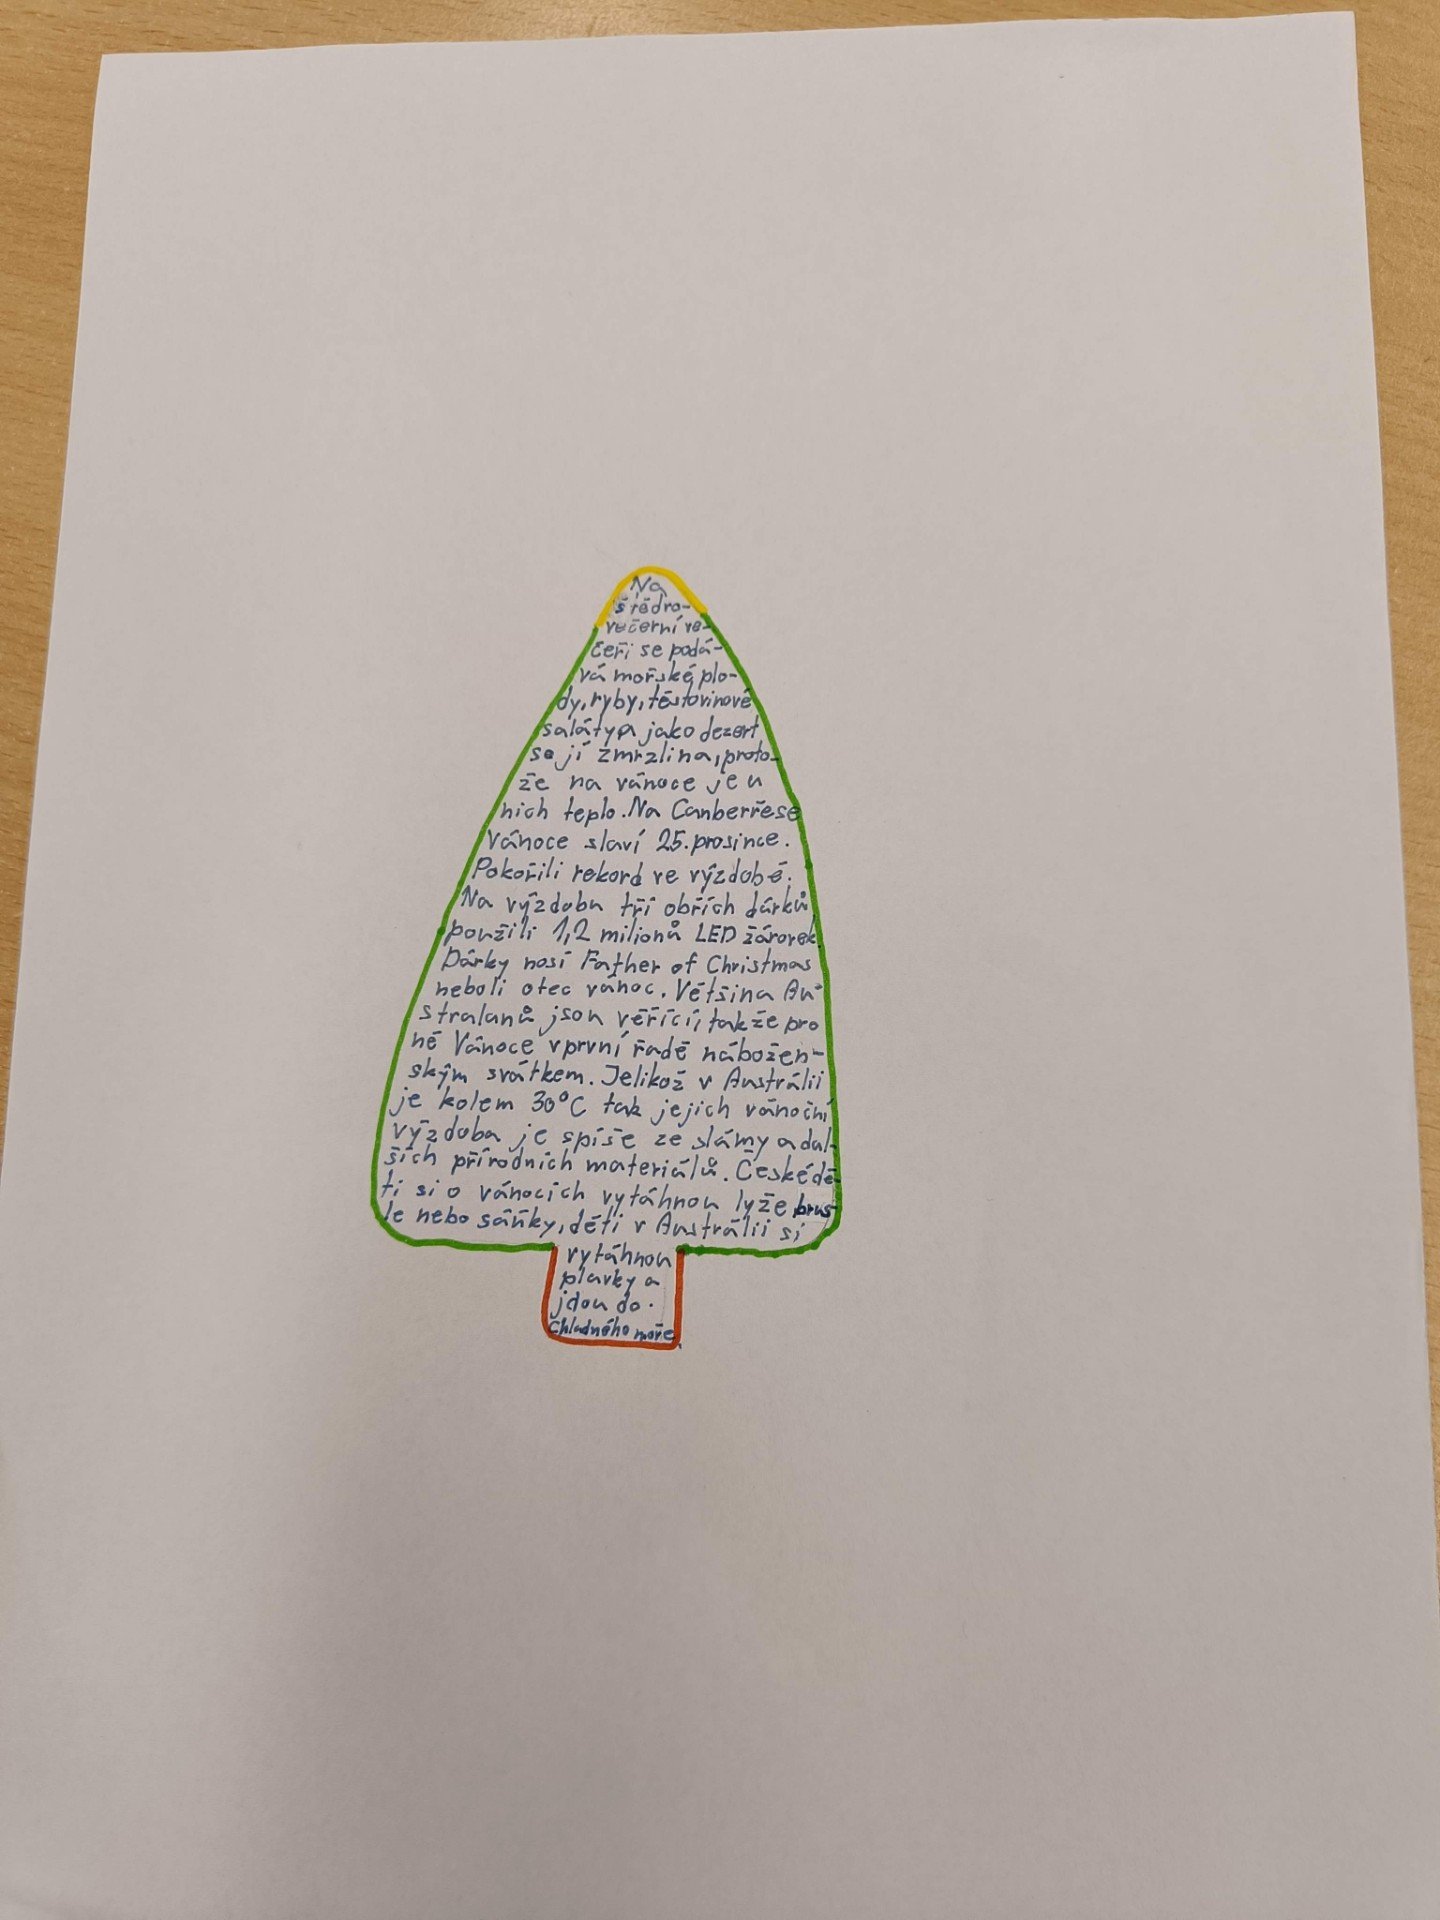 Na
štědro-
večerní ve-
čeři se podá-
vá mořské plo-
dy, ryby, těstovinové
saláty a jako dezert
se jí zmrzlina, proto-
že na vánoce je u
nich teplo. Na Canbeřese
Vánoce slaví 25. prosince.
Pokořili rekord ve výzdobě.
Na výzdobu tří obřích dárků
použili 1,2 milionů LED žárovek.
Dárky nosí Father of Christmas
neboli otec vánoc. Většina Au-
stralanů jsou věřící, takže pro
ně Vánoce v první řadě nábožen-
ským svátkem. Jelikož v Austrálii
je kolem 30°C tak jejich vánoční
výzdoba je spíše ze slámy a dal-
ších přírodních materiálů. České dě-
ti si o vánocích vytáhnou lyže brus-
le nebo sáňky, děti v Austrálii si
vytáhnou
plavky a
jdou do.
Chladného moře.